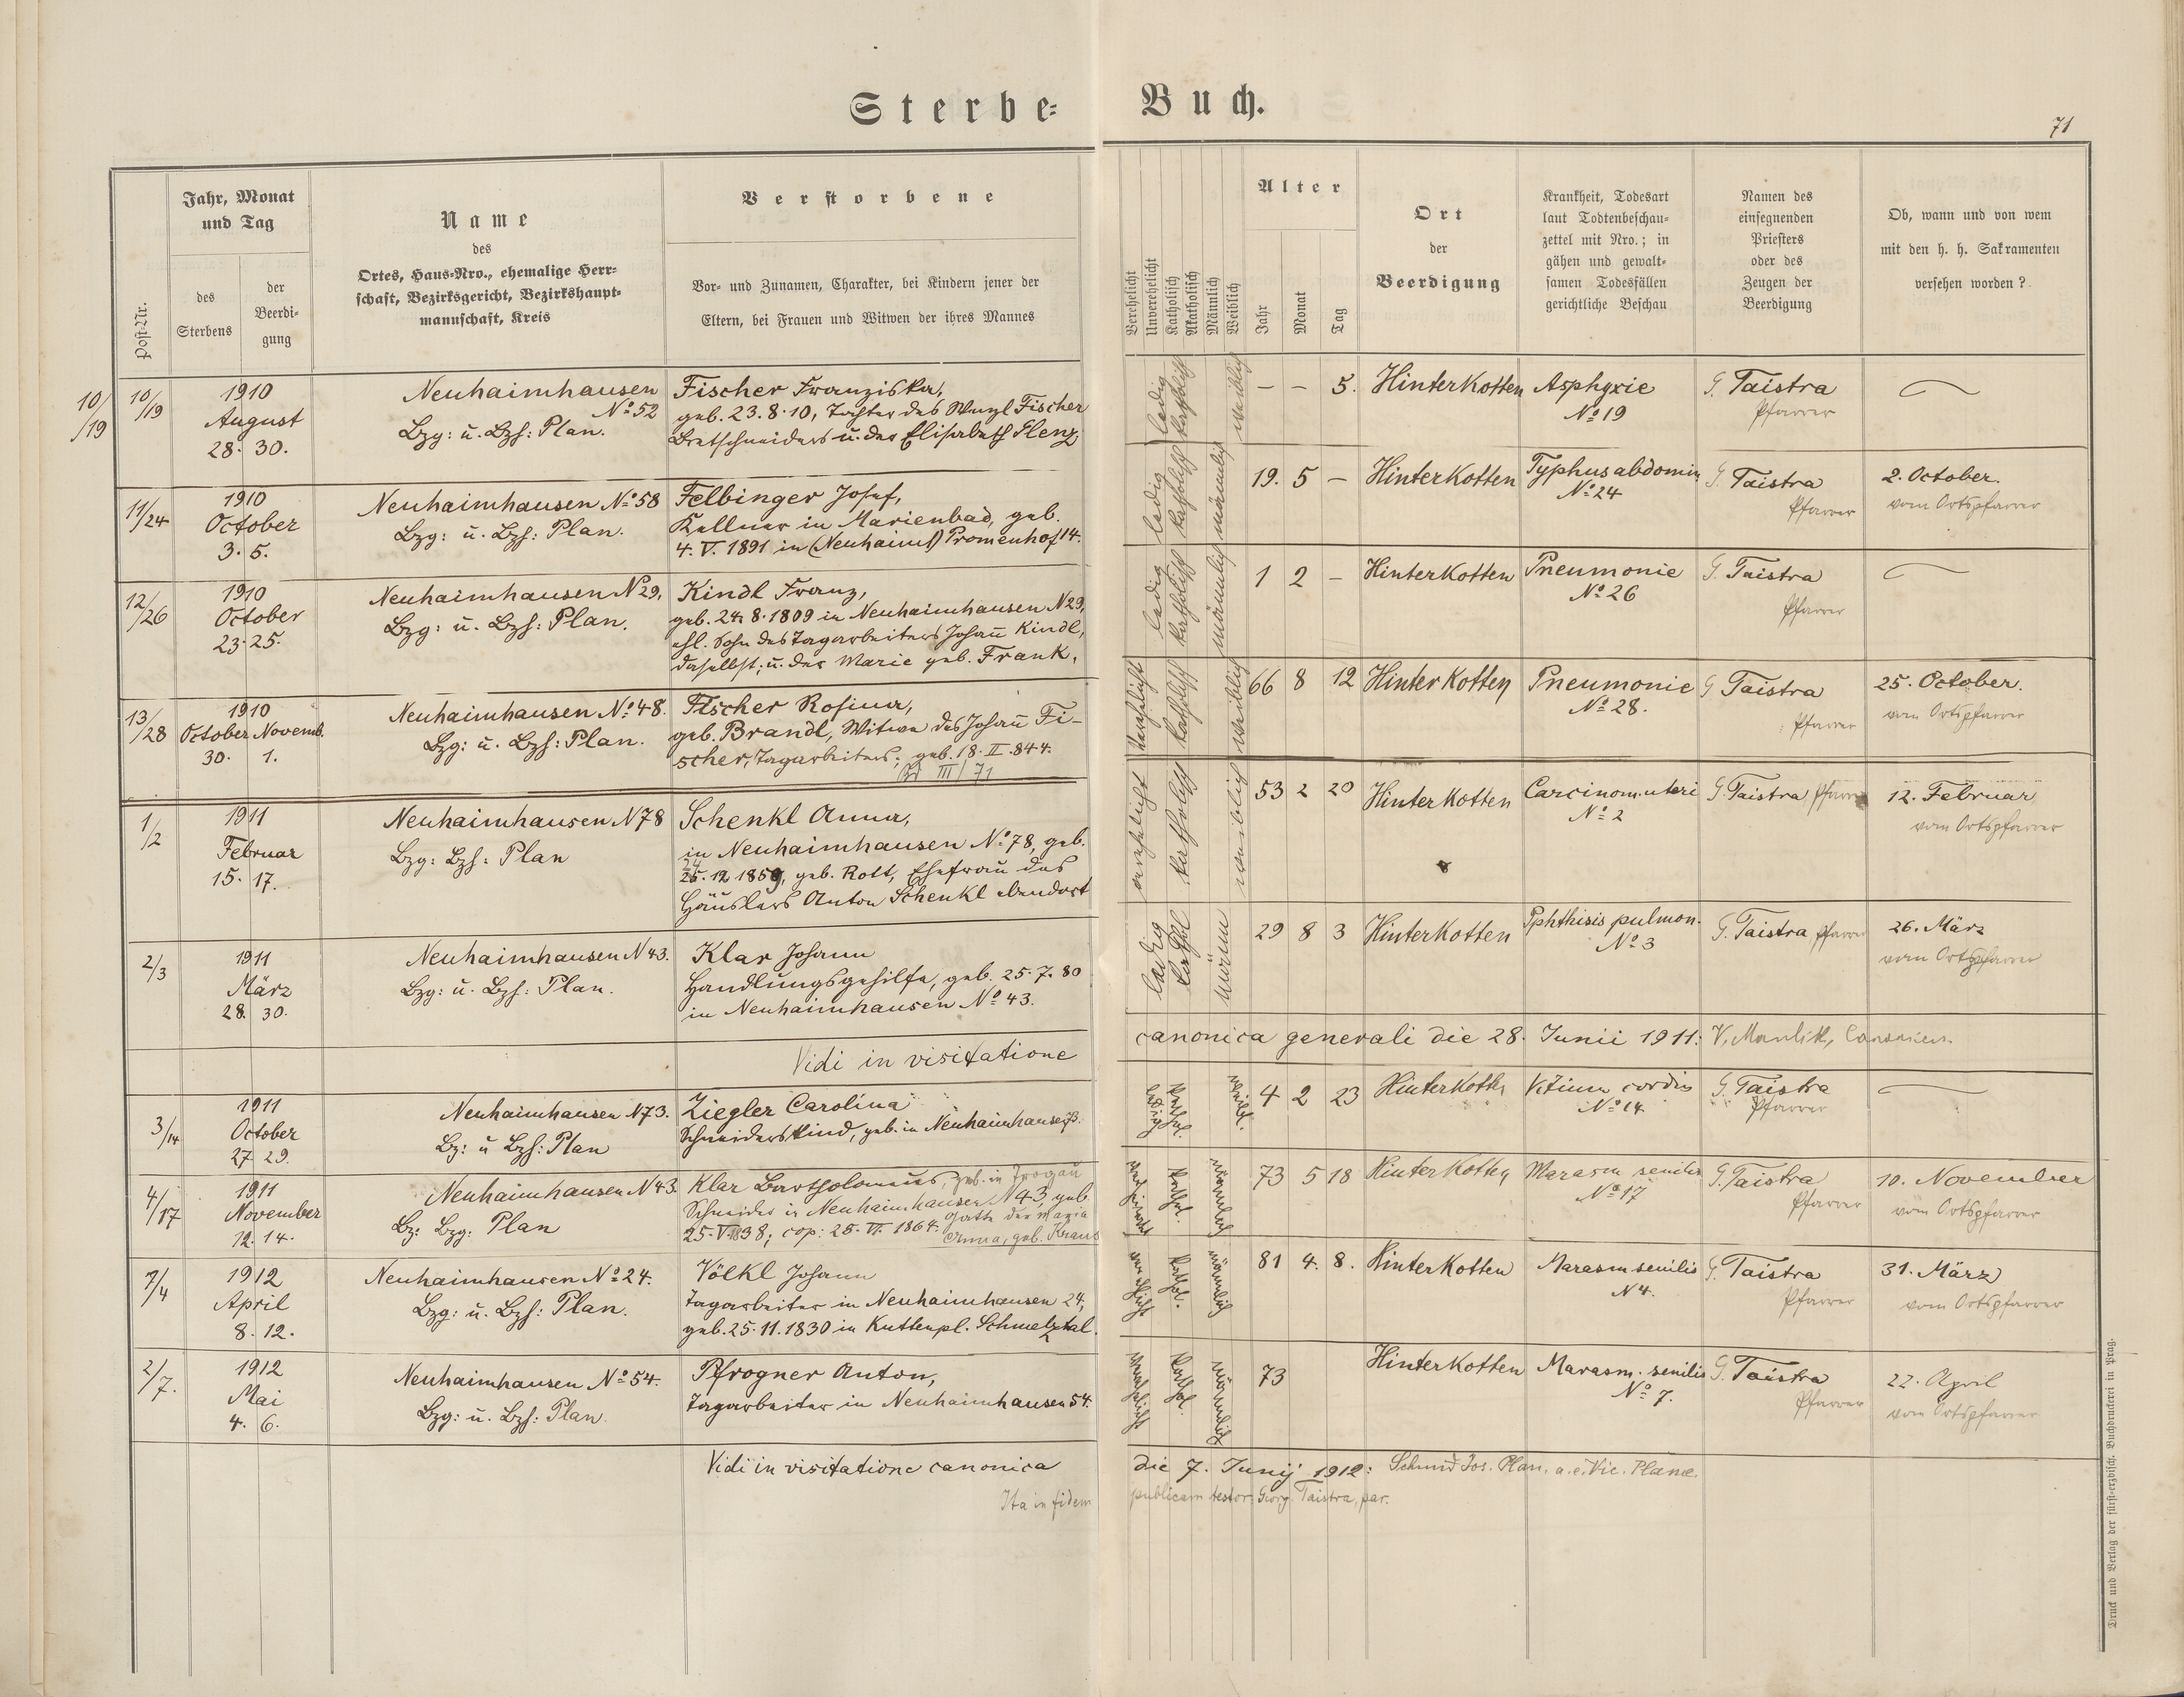 Sterbe-Buch.
71
Post-Nr.
Jahr, Monat
und Tag
des
Sterbens
der
Beerdi-
gung
Name
des
Ortes, Haus-Nro., ehemalige Herr-
schaft, Bezirksgericht, Bezirkshaupt-
mannschaft, Kreis
Verstorbene
Vor- und Zunamen, Charakter, bei Kindern jener der
Eltern, bei Frauen und Witwen der ihres Mannes
Verehelicht
Unverehelicht
Katholisch
Akatholisch
Männlich
Weiblich
Alter
Jahr
Monat
Tag
Ort
der
Beerdigung
Krankheit, Todesart
laut Todtenbeschau-
zettel mit Nro.; in
gähen und gewalt-
samen Todesfällen
gerichtliche Beschau
Namen des
einsegnenden
Priesters
oder des
Zeugen der
Beerdigung
Ob, wann und von wem
mit den h. h. Sakramenten
versehen worden?
10/19
10/19
1910
August
28. 30.
Neuhaimhausen
No 52
Bzg: u. Bzh: Plan.
Fischer Franziska,
geb. 23.8.10, Tochter des Wenzl Fischer
Bretschneiders u. der Elisabeth Flenz
ledig
katholisch
weiblich
– – 5.
Hinterkotten
Asphyxie
No 19
G. Taistra
Pfarrer
11/24
1910
October
3. 5.
Neuhaimhausen No 58
Bzg: u. Bzh: Plan.
Felbinger Josef,
Kellner in Marienbad, geb.
4. V. 1891 in (Neuhaimh) Promenhof 14.
ledig
katholisch
männlich
19. 5 –
Hinterkotten
Typhus abdomin
No 24
G. Taistra
Pfarrer
2. October.
vom Ortspfarrer
12/26
1910
October
23. 25.
Neuhaimhausen N 29,
Bzg: u. Bzh: Plan.
Kindl Franz,
geb. 24.8.1809 in Neuhaimhausen N 29,
ehl. Sohn des Tagarbeiters Johann Kindl,
daselbst; u. der Marie geb. Frank.
ledig
katholisch
männlich
1 2 –
Hinterkotten
Pneumonie
No 26
G. Taistra
Pfarrer
13/28
1910
October Novemb.
30. 1.
Neuhaimhausen No 48.
Bzg: u. Bzh: Plan.
Fischer Rosina,
geb. Brandl, Witwe des Johann Fi-
scher, Tagarbeiters; geb. 18. II. 844.
Bd III/71
verehelicht
katholisch
weiblich
66 8 12
Hinterkotten
Pneumonie
No 28.
G Taistra
Pfarrer
25. October.
vom Ortspfarrer
1/2
1911
Februar
15. 17.
Neuhaimhausen N 78
Bzg: Bzh: Plan
Schenkl Anna,
in Neuhaimhausen No 78, geb.
25.12 1859, geb. Rott, Ehefrau des
Häuslers Anton Schenkl ebendort
verehelicht
katholisch
weiblich
53 2 20
Hinterkotten
Carcinom. uteri
No 2
G. Taistra Pfarrer
12. Februar
vom Ortspfarrer
2/3
1911
März
28. 30.
Neuhaimhausen N 43.
Bzg: u. Bzh: Plan.
Klar Johann
Handlungsgehilfe, geb. 25.7.80
in Neuhaimhausen No 43.
ledig
kathol
männ
29 8 3
Hinterkotten
Pphthisis pulmon.
No 3
G. Taistra Pfarrer
26. März
vom Ortspfarrer
Vidi in visitatione canonica generali die 28. Junii 1911:
3/14
1911
October
27 29.
Neuhaimhausen N 73.
Bz: u Bzh: Plan
Ziegler Carolina
Schneiderskind, geb. in Neuhaimhausen 73.
ledig
kathol.
weibl.
4 2 23
Hinterkotten
Vitium cordis
No 14
G. Taistra
Pfarrer
4/17
1911
November
12. 14.
Neuhaimhausen N 43.
Bz: Bzg: Plan
Klar Bartholomäus, geb. in Trogau
Schneider in Neuhaimhausen N 43, geb.
25.V.1838; cop: 25. VII. 1864. Gatte der Maria
Anna, geb. Kraus
verheiratet
kathol.
männlich
73 5 18
Hinterkotten
Marasm senilis
No 17
G. Taistra
Pfarrer
10. November
vom Ortspfarrer
7/4
1912
April
8. 12.
Neuhaimhausen No 24.
Bzg: u. Bzh: Plan.
Völkl Johann
Tagarbeiter in Neuhaimhausen 24,
geb. 25.11.1830 in Kuttenpl. Schmelztal.
verehlicht
kathol.
männlich
81 4. 8.
Hinterkotten
Marasm senilis
N 4.
G. Taistra
Pfarrer
31. März
vom Ortspfarrer
2/7.
1912
Mai
4. 6.
Neuhaimhausen No 54.
Bzg: u. Bzh: Plan.
Pfrogner Anton,
Tagarbeiter in Neuhaimhausen 54.
verehelicht
kathol.
männlich
73
Hinterkotten
Marasm. senilis
No 7.
G. Taistra
Pfarrer
22. April
vom Ortspfarrer
Vidi in visitatione canonica die 7. Junij 1912: Schmid Jos. Plan. a.e. Vic. Planae.
Ita in fidem publicam testor: Georg. Taistra, par.
Druck und Verlag der fürst-erzbisch. Buchdruckerei in Prag.